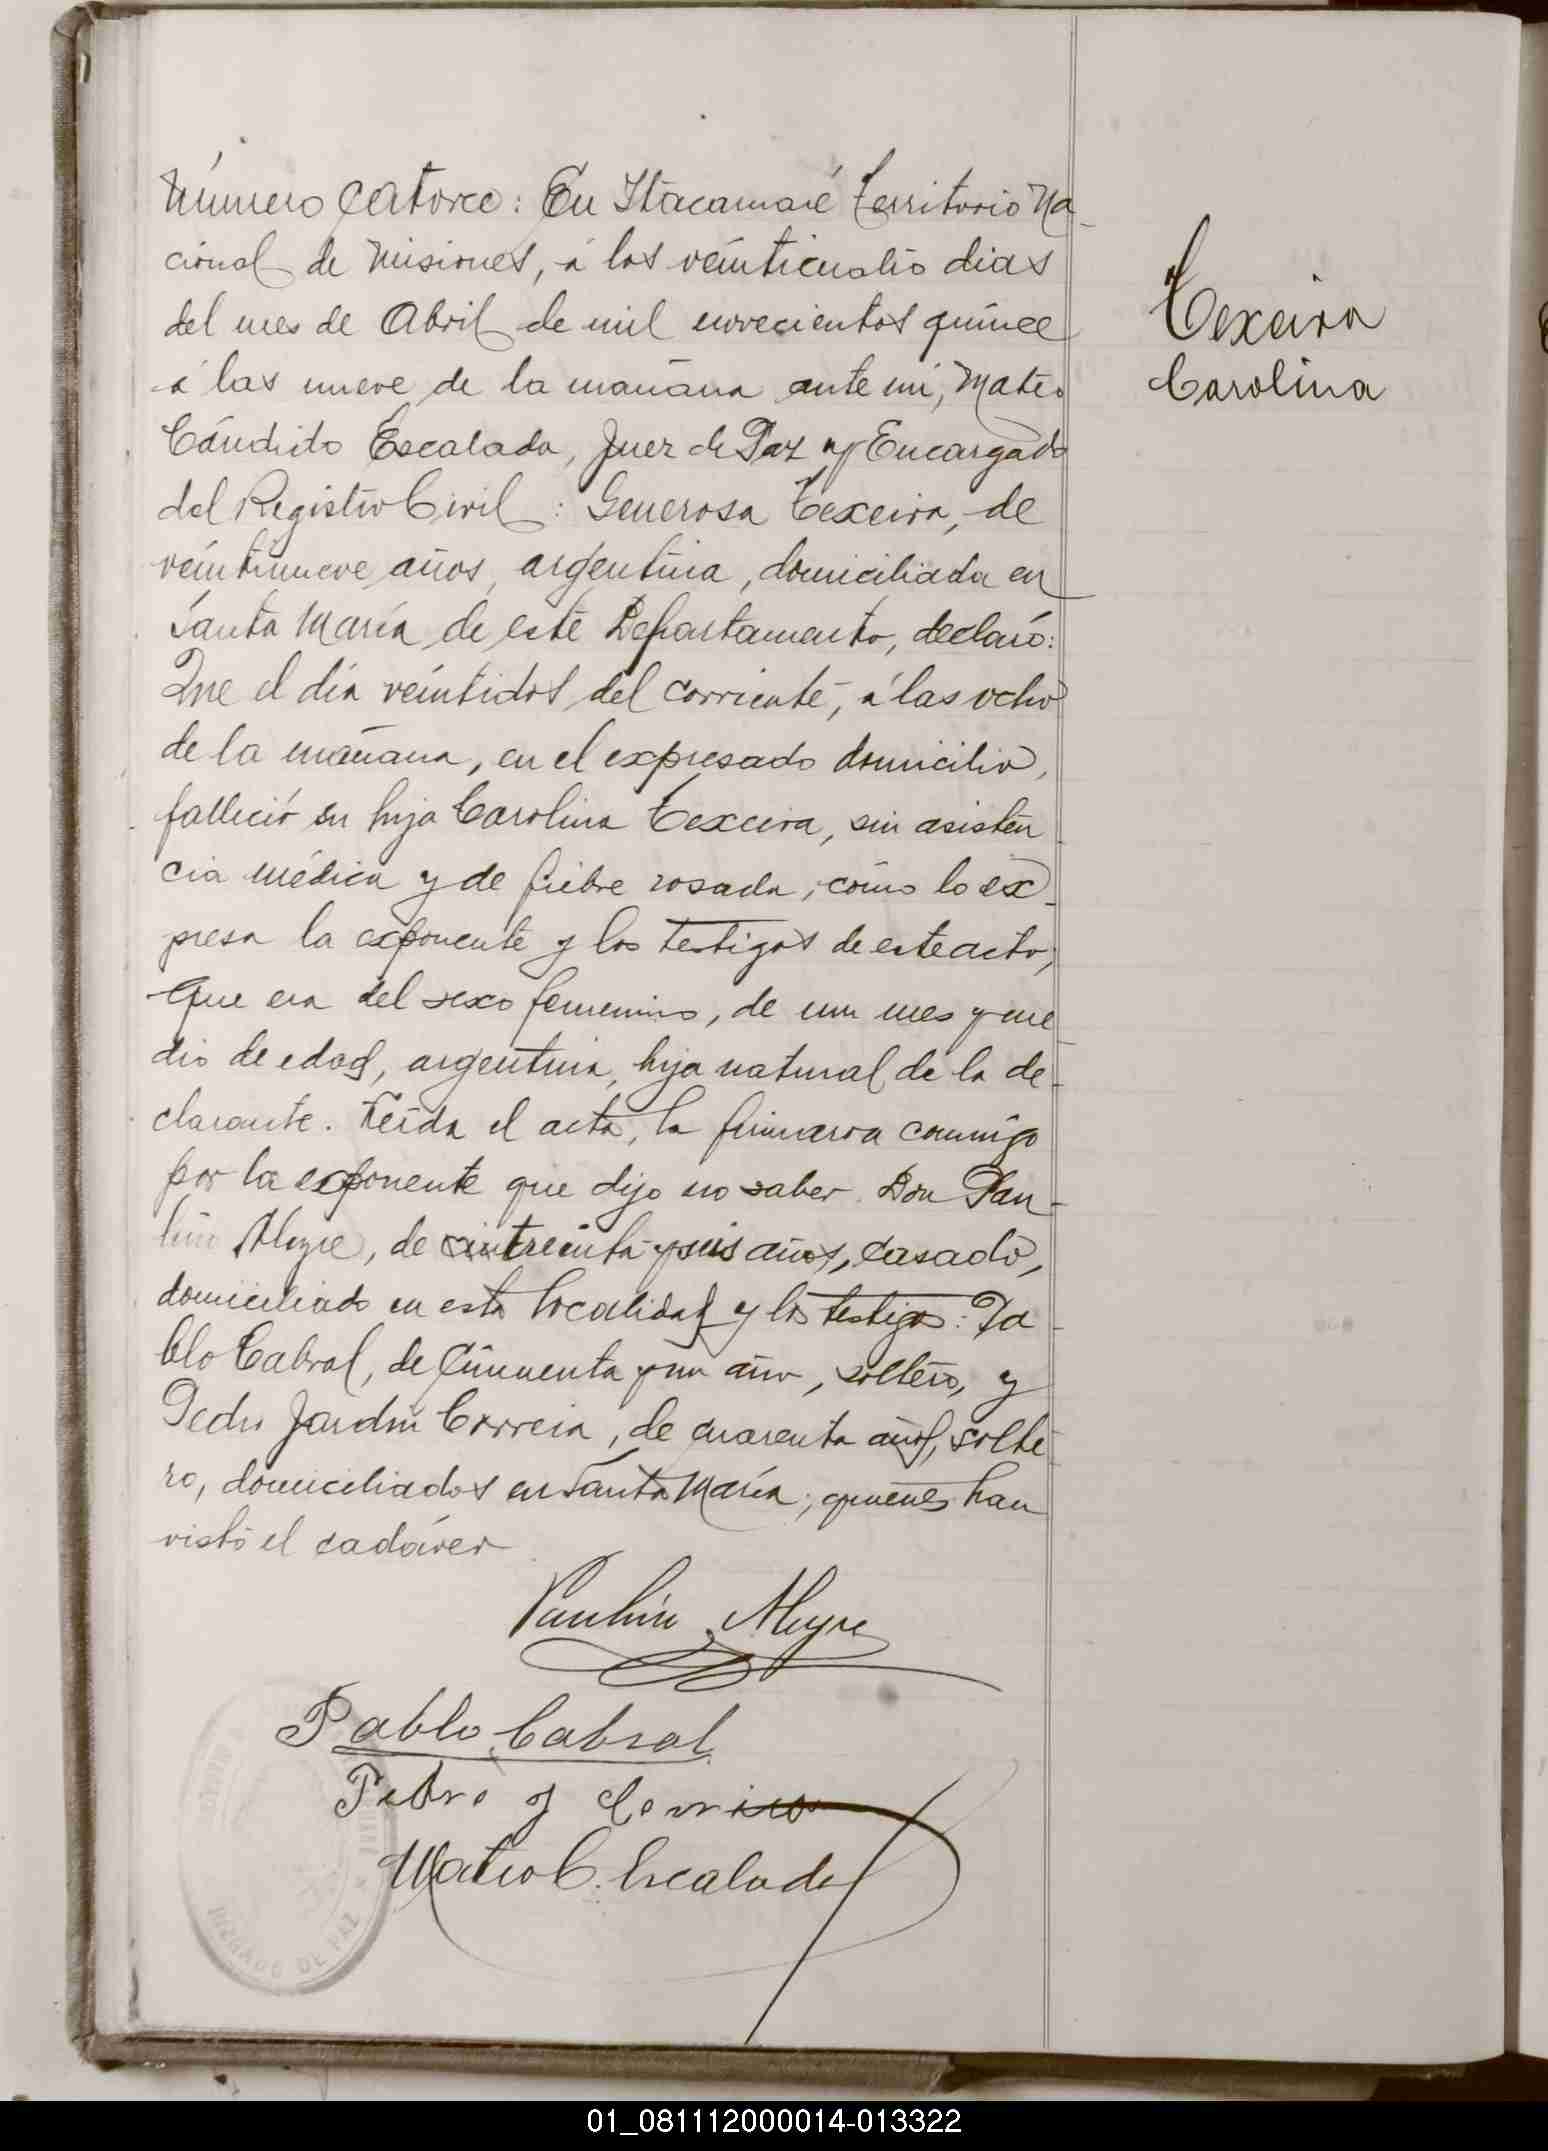 Número Catorce: En Itacaruaré Territorio Na-
cional de Misiones, á los veinticuatro dias
del mes de Abril de mil novecientos quince
á las nueve de la mañana ante mi, Mateo
Cándido Escalada, Juez de Paz y Encargado
del Registro Civil: Generosa Texeira, de
veintinueve años, argentina, domiciliada en
Santa María de este Departamento, declaró:
Que el día veintidos del corriente, á las ocho
de la mañana, en el expresado domicilio,
falleció su hija Carolina Texeira, sin asisten
cia médica y de fiebre rosada, como lo ex-
presa la exponente y los testigos de este acto,
que era del sexo femenino, de un mes y me
dio de edad, argentina, hija natural de la de-
clarante. Leida el acta, la firmaron conmigo
por la exponente que dijo no saber Don Pau-
lino Alegre, de treinta y seis años, casado,
domiciliado en esta localidad y los testigos: Pa-
blo Cabral, de cincuenta y un año, soltero, y
Pedro Jardin Correia, de cuarenta años, solte-
ro, domiciliados en Santa María; quienes han
visto el cadáver
Paulino Alegre
Pablo Cabral
Pedro J Correia
Mateo C. Escalada
JUZGADO DE PAZ
Texeira
Carolina
01_081112000014-013322